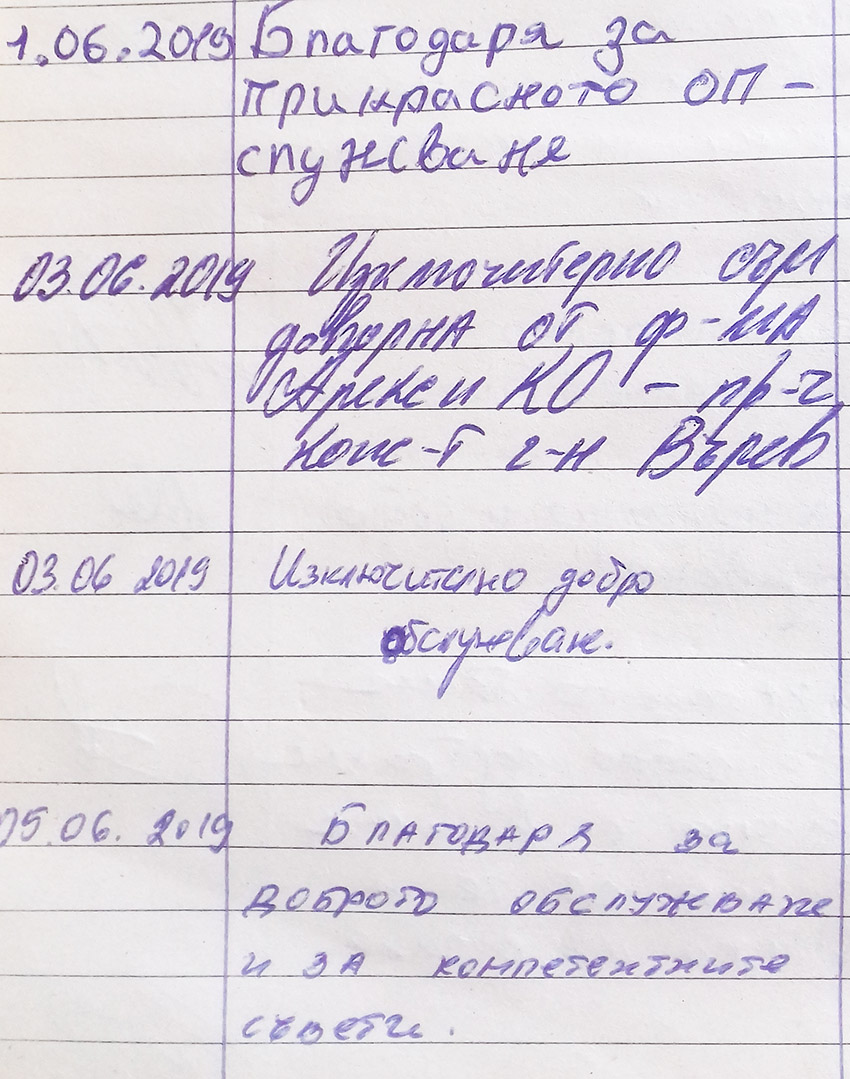 1.06.2019 Благодаря за
прикрасното оп-
служваня
03.06.2019 Изключително съм
доволна от ф-ма
Алекси КО - пр-г
конс-т г-н Вълев
03.06 2019 Изключително добро
обслужване.
05.06. 2019 Благодаря за
доброто обслужване
и за компетентните
съвети.